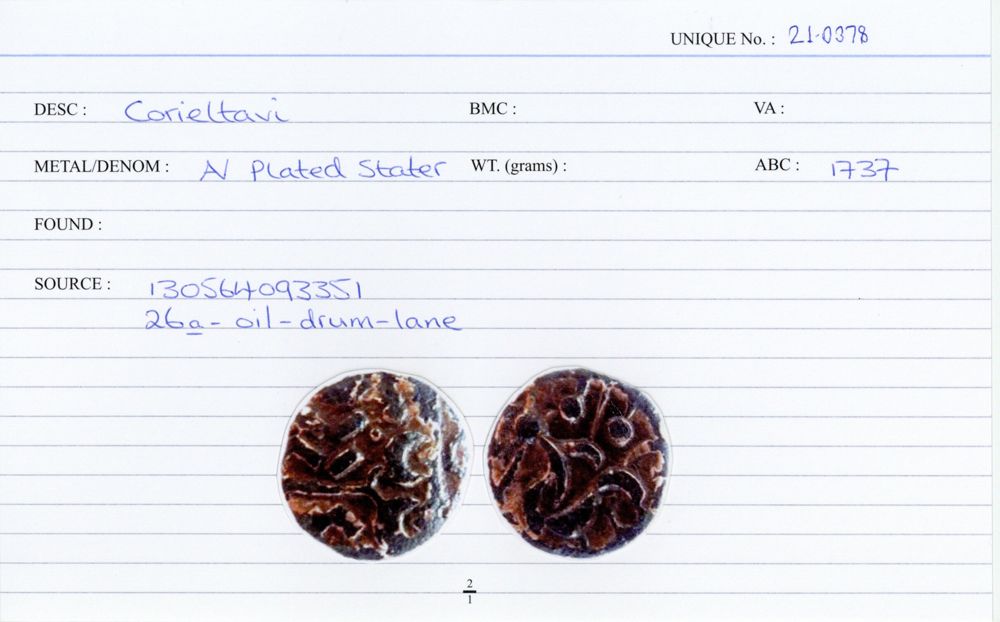 UNIQUE No. : 21-0378
DESC : Corieltavi BMC : VA :
METAL/DENOM : AV Plated Stater WT. (grams) : ABC : 1737
FOUND :
SOURCE : 130564093351
26a-oil-drum-lane
2
1